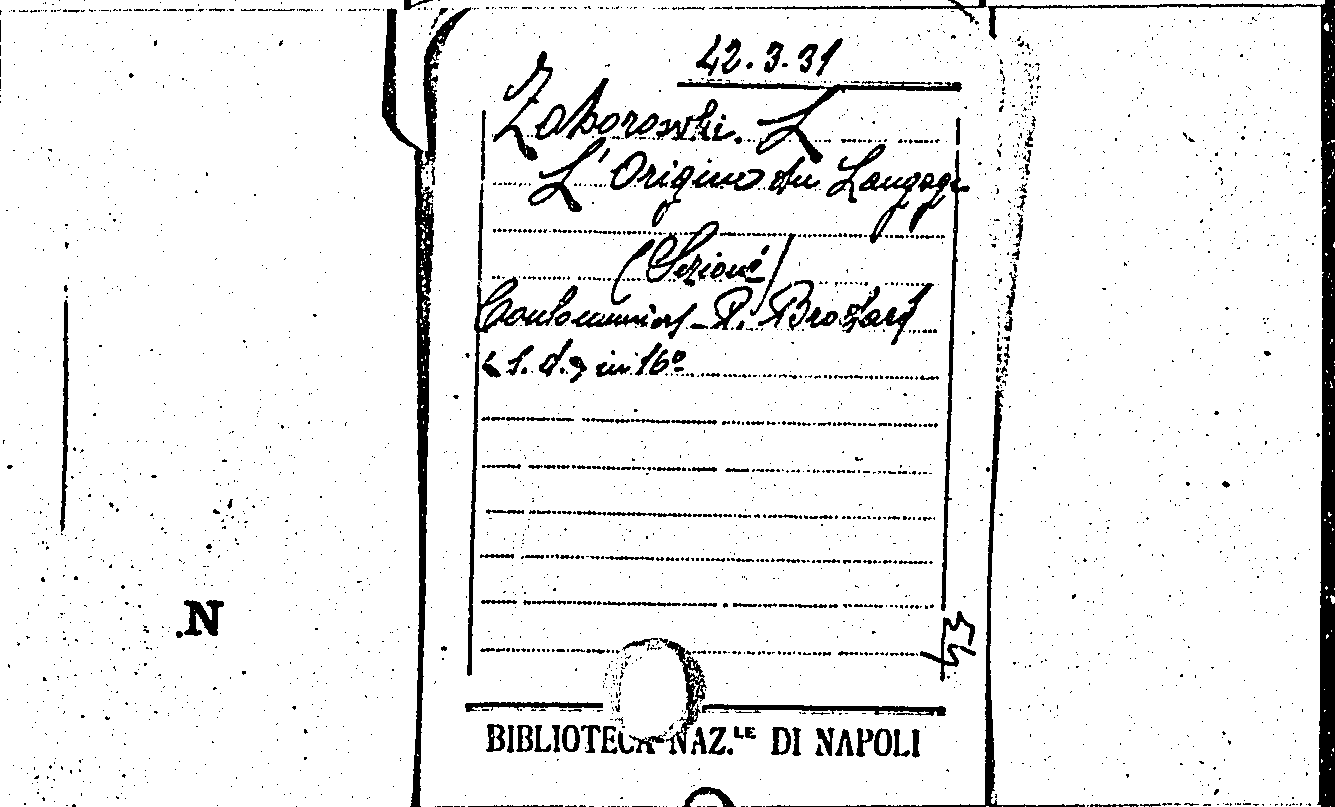 42.3.31
Zaborowski. L
L'Origine du Langage
Coulommiers - P. Brodard
< s. d. > in 16º
N
BIBLIOTECA NAZ.LE DI NAPOLI